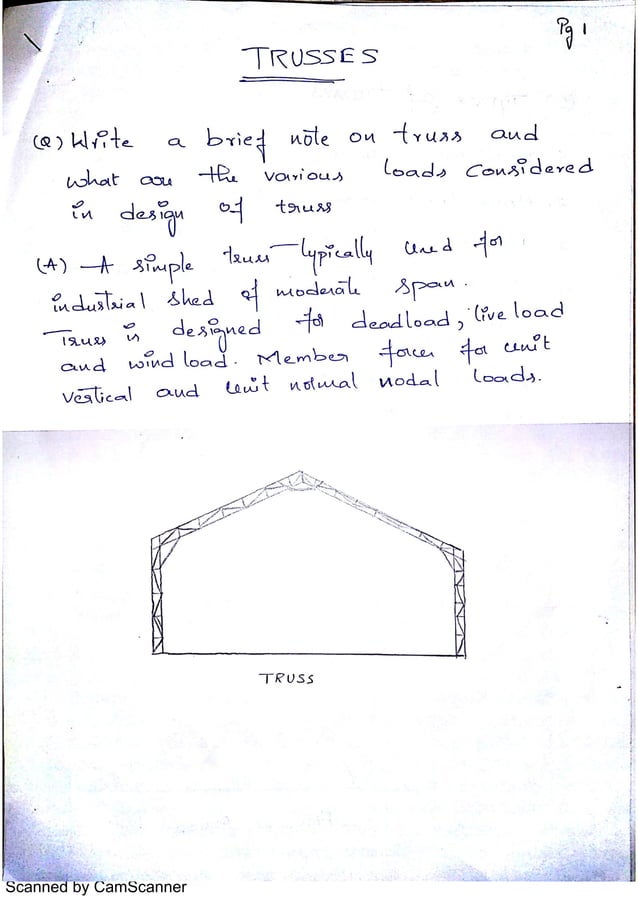 Pg 1
TRUSSES
(Q) Write a brief note on truss and
what are the various loads considered
in design of truss
(A) A simple truss typically used for
industrial shed of moderate span.
Truss is designed for deadload, live load
and wind load. Member forces for unit
vertical and unit normal nodal loads.
TRUSS
Scanned by CamScanner